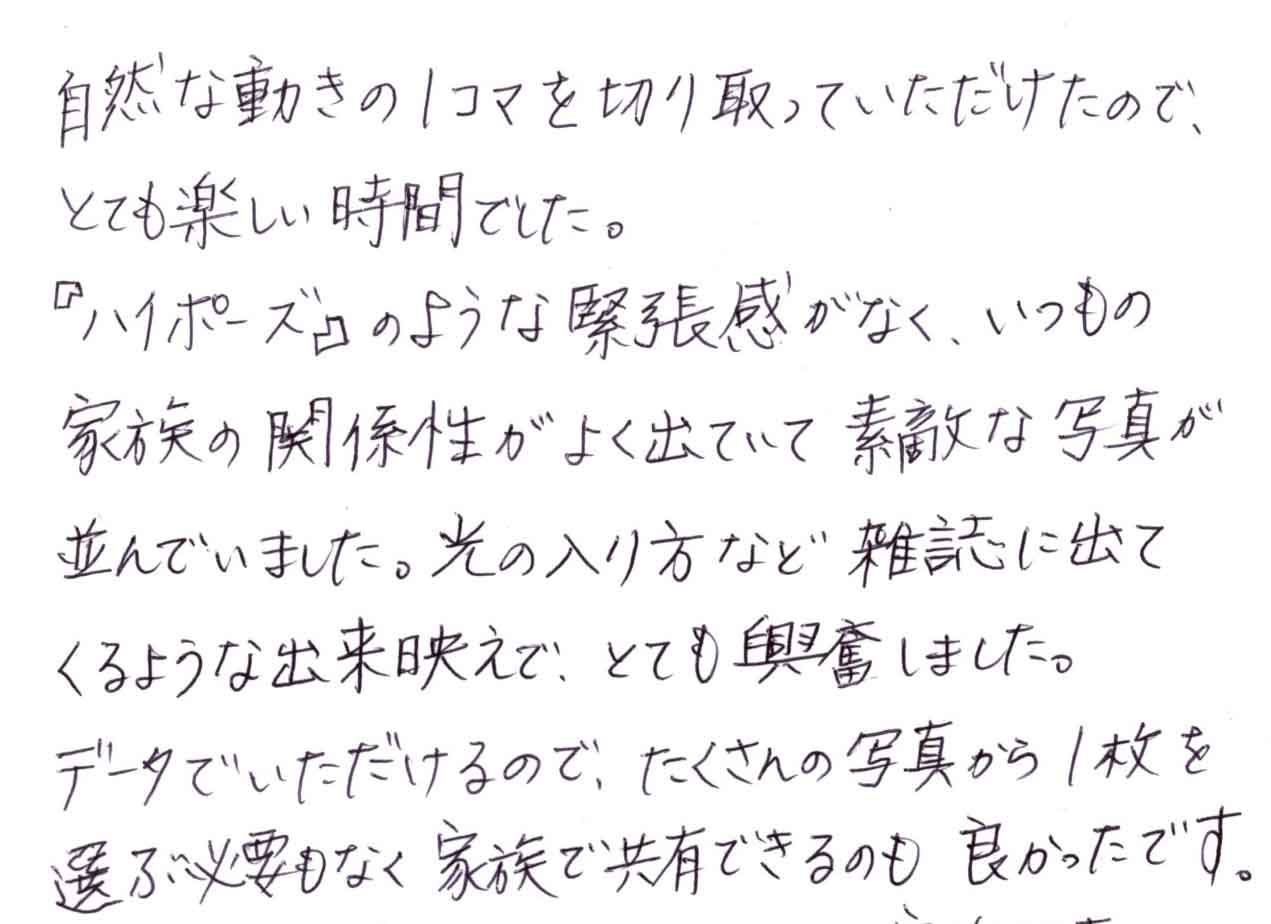 自然な動きの1コマを切り取っていただけたので、
とても楽しい時間でした。
『ハイポーズ』のような緊張感がなく、いつもの
家族の関係性がよく出ていて素敵な写真が
並んでいました。光の入り方など雑誌に出て
くるような出来映えで、とても興奮しました。
データでいただけるので、たくさんの写真から1枚を
選ぶ必要もなく家族で共有できるのも良かったです。